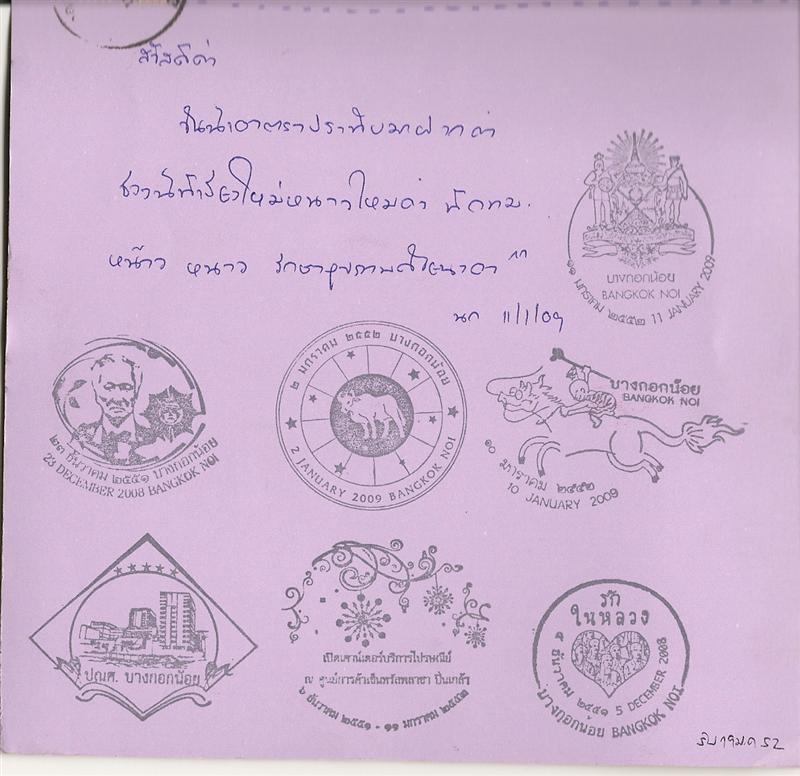 สวัสดีค่ะ
ฉันนำเอาตราประทับมาฝากค่ะ
ช่วงนี้ที่เชียงใหม่หนาวไหมค่ะ ที่ กทม.
หน๊าว หนาว รักษาสุขภาพด้วยนะคะ ^^
นก 11/1/09
บางกอกน้อย
BANGKOK NOI
๑๑ มกราคม ๒๕๕๒ 11 JANUARY 2009
๒๓ ธันวาคม ๒๕๕๑ บางกอกน้อย
23 DECEMBER 2008 BANGKOK NOI
๒ มกราคม ๒๕๕๒ บางกอกน้อย
2 JANUARY 2009 BANGKOK NOI
บางกอกน้อย
BANGKOK NOI
๑๐ มกราคม ๒๕๕๒
10 JANUARY 2009
ปณศ. บางกอกน้อย
เปิดเคาน์เตอร์บริการไปรษณีย์
ณ ศูนย์การค้าเซ็นทรัลพลาซา ปิ่นเกล้า
๖ ธันวาคม ๒๕๕๑ - ๑๑ มกราคม ๒๕๕๒
รัก
ในหลวง
๕ ธันวาคม ๒๕๕๑ 5 DECEMBER 2008
บางกอกน้อย BANGKOK NOI
รับ 19 ม.ค 52